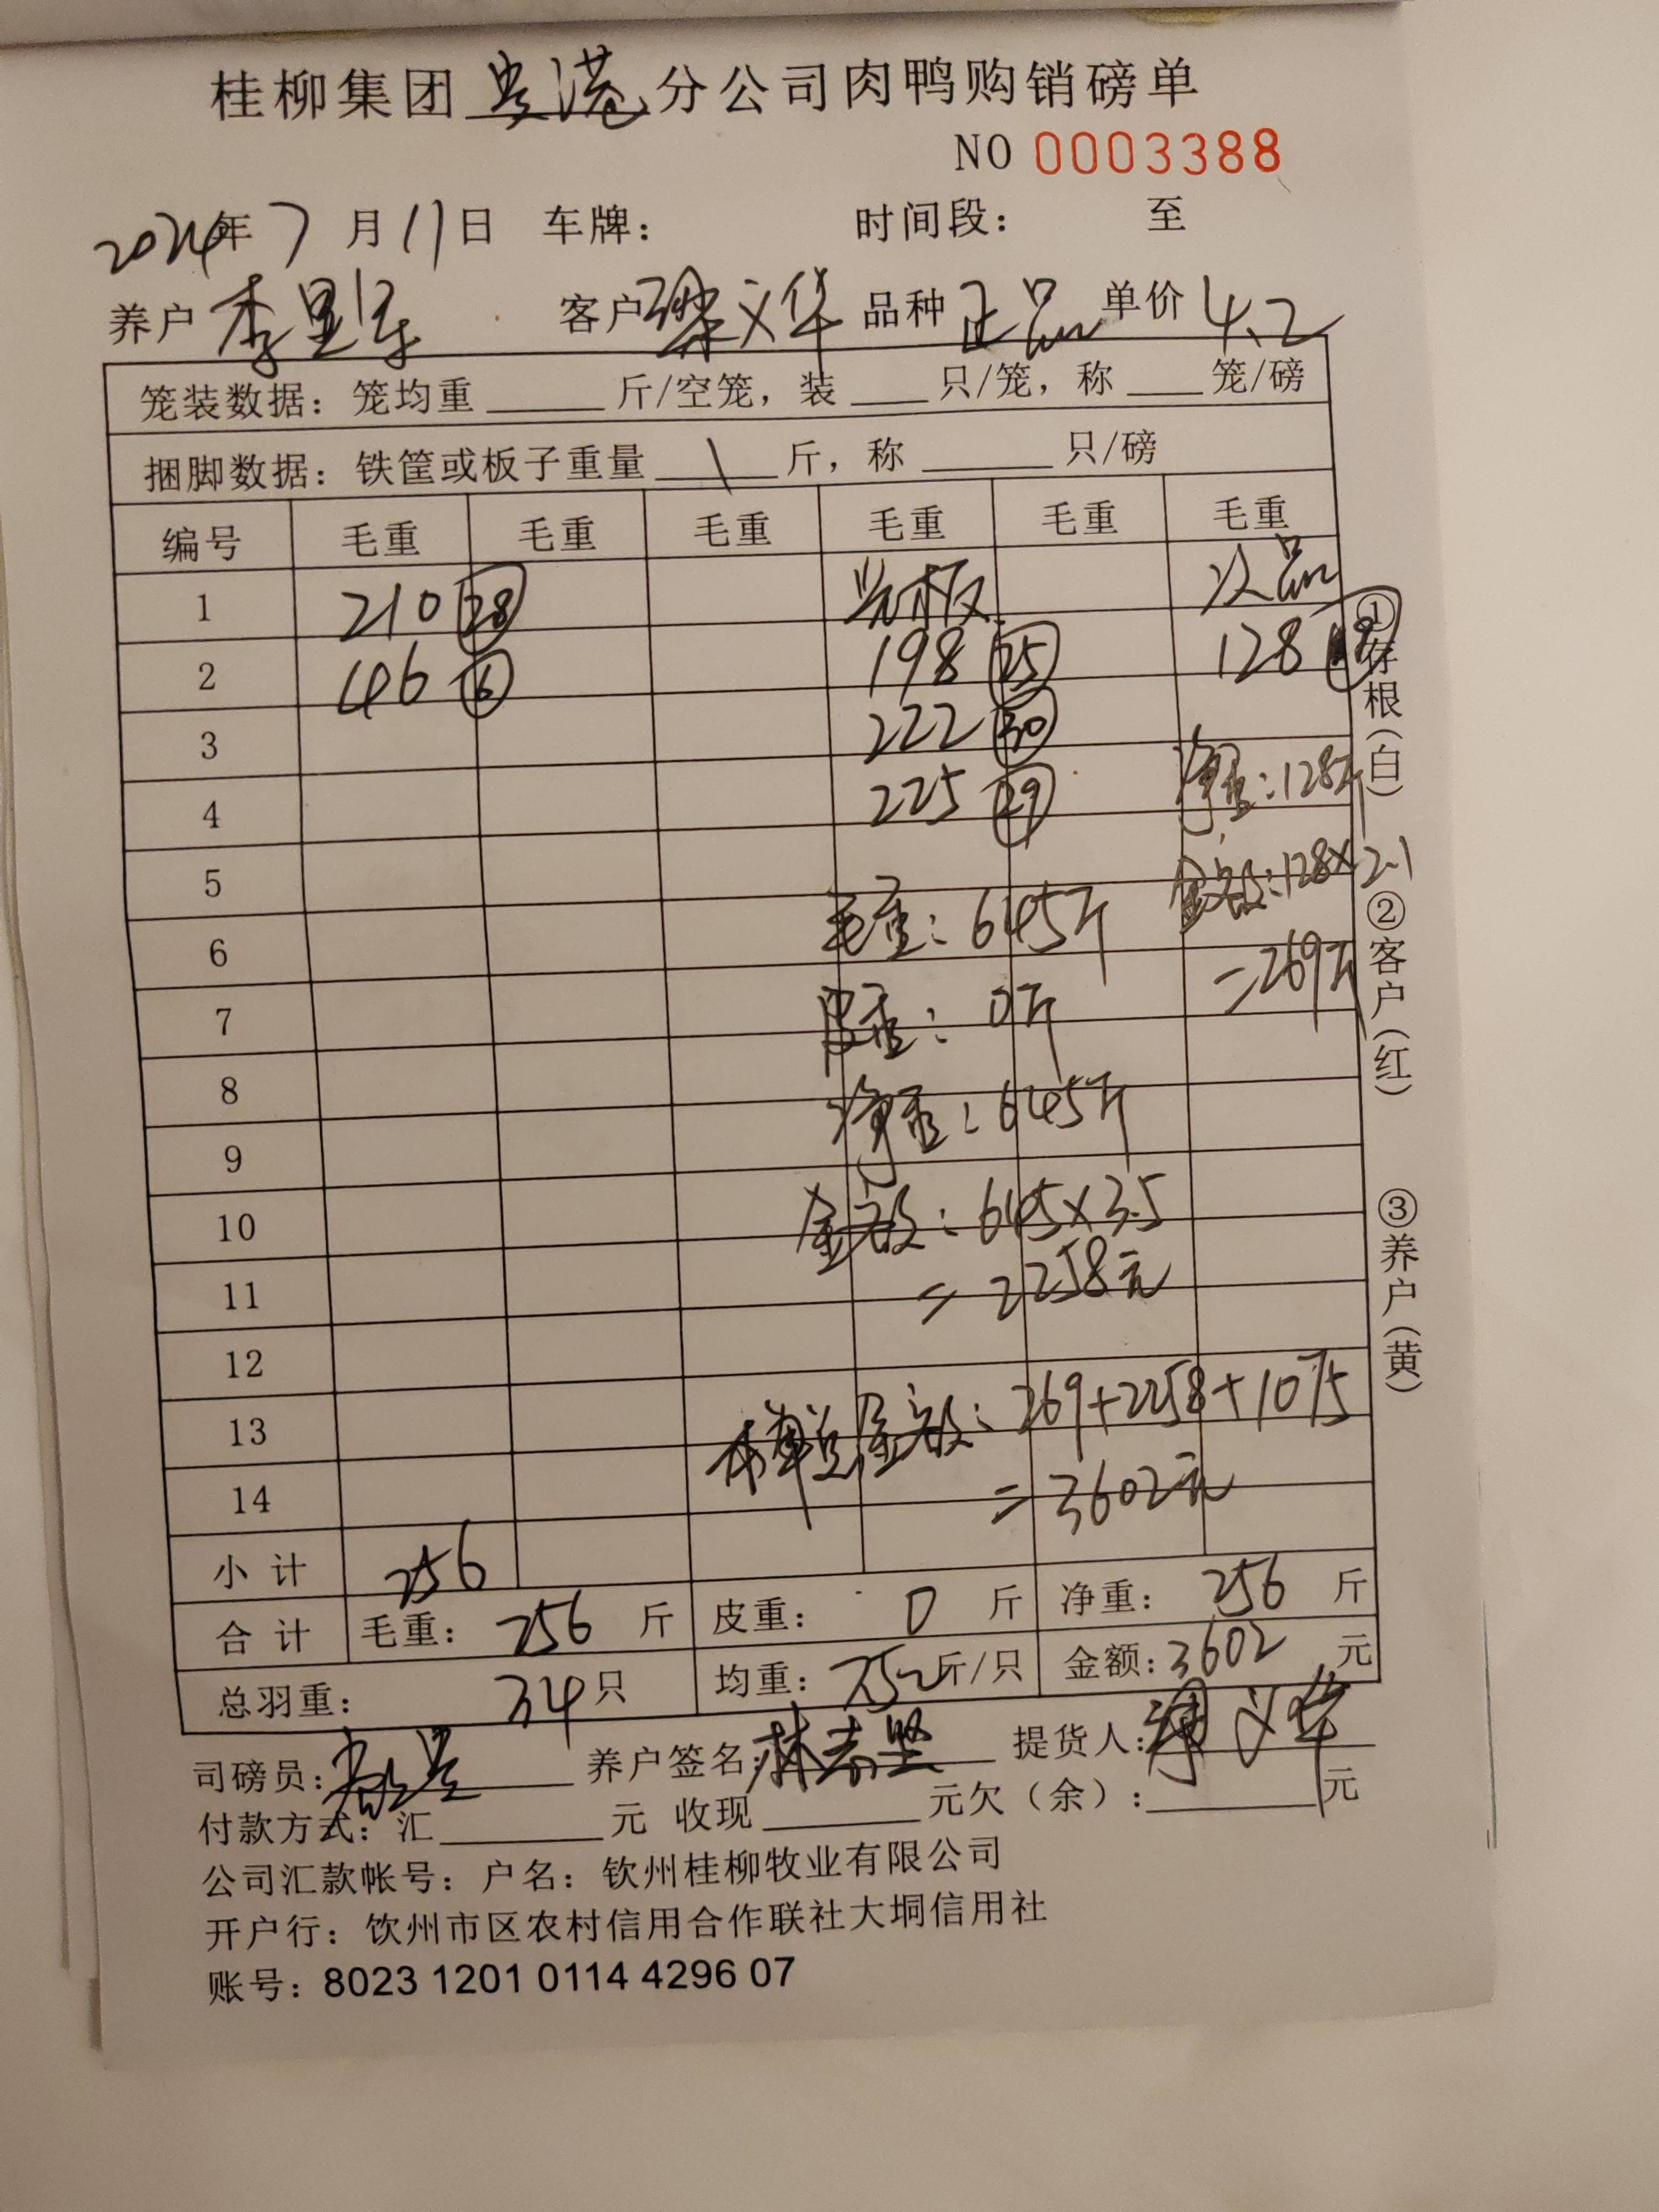 桂柳集团贵港分公司肉鸭购销磅单
NO 0003388
2024年7月11日 车牌: 时间段: 至
养户 李 客户 梁义华 品种 正品 单价 4.2
笼装数据: 笼均重 斤/空笼, 装 只/笼, 称 笼/磅
捆脚数据: 铁筐或板子重量 \ 斤, 称 只/磅
编号 毛重 毛重 毛重 毛重 毛重 毛重
1 210 28 光板 次品
2 46 6 198 25 128
3 222 30
4 225 29 净重:128斤
5 金额:128×2.1
6 毛重:645斤 =269元
7 皮重:0斤
8 净重:645斤
9
10 金额:645×3.5
11 =2258元
12
13 本单总金额:269+2258+1075
14 =3602元
小计 256
合计 毛重: 256 斤 皮重: 0 斤 净重: 256 斤
总羽重: 34只 均重: 7.52斤/只 金额:3602 元
司磅员: 养户签名:林志坚 提货人:谭义华
付款方式: 汇 元 收现 元欠(余): 元
公司汇款帐号: 户名: 钦州桂柳牧业有限公司
开户行: 钦州市区农村信用合作联社大垌信用社
账号: 8023 1201 0114 4296 07
①存根(白)
②客户(红)
③养户(黄)